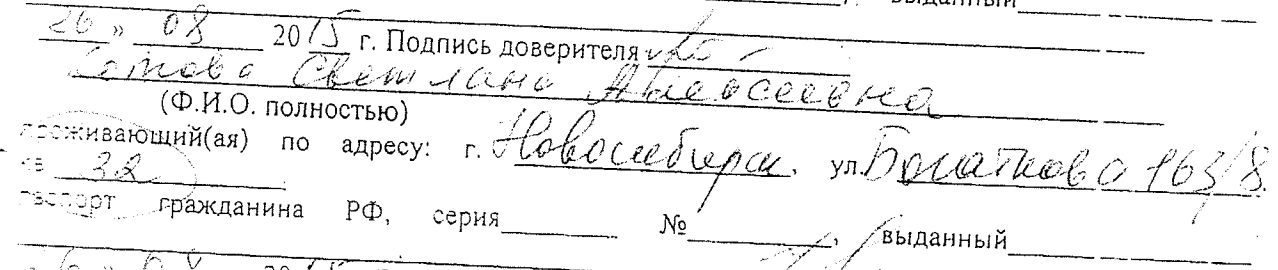 выданный
26 » 08 2015 г. Подпись доверителя
Светлана Алексеевна
(Ф.И.О. полностью)
проживающий(ая) по адресу: г. Новосибирск, ул. Богаткова 163/8.
кв 32
паспорт гражданина РФ, серия № , выданный